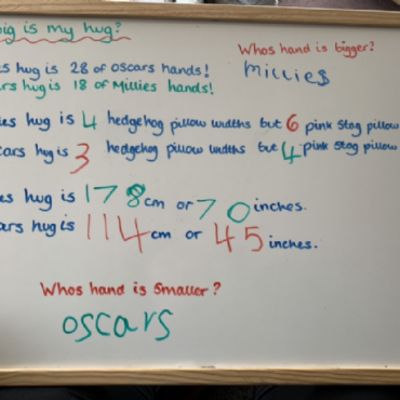 ig is my hug?
Whos hand is bigger?
Millies
es hug is 28 of oscars hands!
ars hug is 18 of Millies hands!
ies hug is 4 hedgehog pillow widths but 6 pink stag pillow
cars hug is 3 hedgehog pillow widths but 4 pink stag pillow
es hug is 178cm or 70 inches.
ars hug is 114cm or 45 inches.
Whos hand is smaller?
oscars